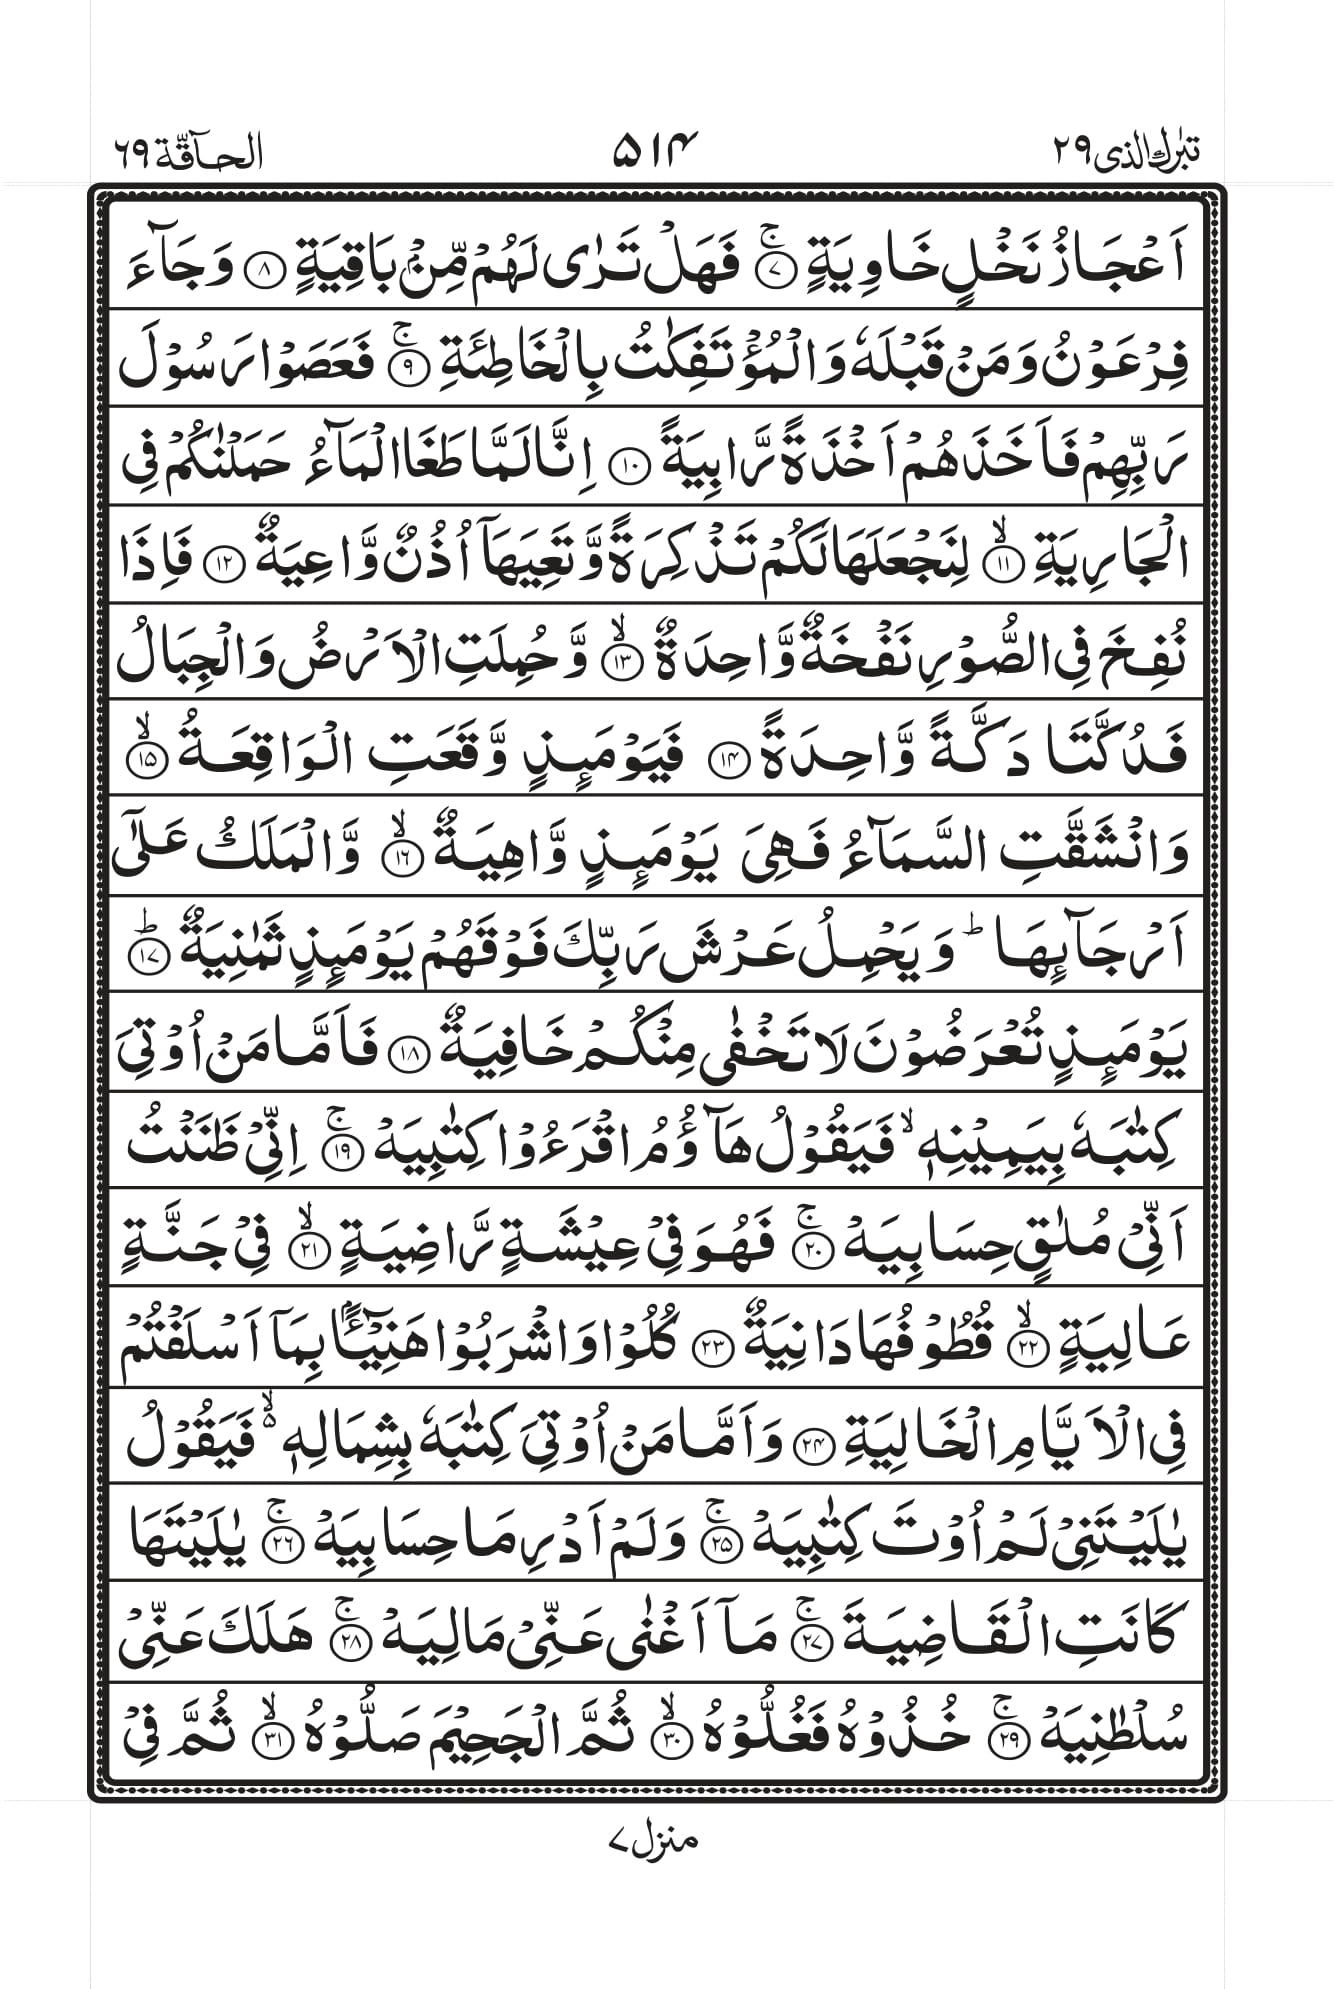 تبٰرك الذی ٢٩ ۵۱۴ الحآقّة ٦٩
اَعۡجَازُ نَخۡلٍ خَاوِيَةٍ ۚ‏﴿۷﴾ فَهَلۡ تَرٰى لَهُمۡ مِّنۡۢ بَاقِيَةٍ ﴿۸﴾ وَجَآءَ
فِرۡعَوۡنُ وَمَنۡ قَبۡلَهٗ وَالۡمُؤۡتَفِكٰتُ بِالۡخَاطِئَةِ​ ۚ‏﴿۹﴾ فَعَصَوۡا رَسُوۡلَ
رَبِّهِمۡ فَاَخَذَهُمۡ اَخۡذَةً رَّابِيَةً ﴿۱۰﴾ اِنَّا لَمَّا طَغَا الۡمَآءُ حَمَلۡنٰكُمۡ فِى
الۡجَارِيَةِ ۙ‏﴿۱۱﴾ لِنَجۡعَلَهَا لَكُمۡ تَذۡكِرَةً وَّتَعِيَهَاۤ اُذُنٌ وَّاعِيَةٌ ﴿۱۲﴾ فَاِذَا
نُفِخَ فِى الصُّوۡرِ نَفۡخَةٌ وَّاحِدَةٌ ۙ‏﴿۱۳﴾ وَّحُمِلَتِ الۡاَرۡضُ وَالۡجِبَالُ
فَدُكَّتَا دَكَّةً وَّاحِدَةً ﴿۱۴﴾ فَيَوۡمَٮِٕذٍ وَّقَعَتِ الۡوَاقِعَةُ ۙ‏﴿۱۵﴾
وَانْشَقَّتِ السَّمَآءُ فَهِىَ يَوۡمَٮِٕذٍ وَّاهِيَةٌ ۙ‏﴿۱۶﴾ وَّالۡمَلَكُ عَلٰٓى
اَرۡجَآٮِٕهَا ​ؕ وَيَحۡمِلُ عَرۡشَ رَبِّكَ فَوۡقَهُمۡ يَوۡمَٮِٕذٍ ثَمٰنِيَةٌ ؕ‏﴿۱۷﴾
يَوۡمَٮِٕذٍ تُعۡرَضُوۡنَ لَا تَخۡفٰى مِنۡكُمۡ خَافِيَةٌ ﴿۱۸﴾ فَاَمَّا مَنۡ اُوۡتِىَ
كِتٰبَهٗ بِيَمِيۡنِهٖۙ فَيَقُوۡلُ هَآؤُمُ اقۡرَءُوۡا كِتٰبِيَهۡ​ۚ‏﴿۱۹﴾ اِنِّىۡ ظَنَنۡتُ
اَنِّىۡ مُلٰقٍ حِسَابِيَهۡ​ۚ‏﴿۲۰﴾ فَهُوَ فِىۡ عِيۡشَةٍ رَّاضِيَةٍ ۙ‏﴿۲۱﴾ فِىۡ جَنَّةٍ
عَالِيَةٍ ۙ‏﴿۲۲﴾ قُطُوۡفُهَا دَانِيَةٌ ﴿۲۳﴾ كُلُوۡا وَاشۡرَبُوۡا هَنِيۡٓـــٴًۢا بِمَاۤ اَسۡلَفۡتُمۡ
فِى الۡاَيَّامِ الۡخَالِيَةِ ﴿۲۴﴾ وَاَمَّا مَنۡ اُوۡتِىَ كِتٰبَهٗ بِشِمَالِهٖ ۙ۬ فَيَقُوۡلُ
يٰلَيۡتَنِىۡ لَمۡ اُوۡتَ كِتٰبِيَهۡ​ۚ‏﴿۲۵﴾ وَلَمۡ اَدۡرِ مَا حِسَابِيَهۡ​ۚ‏﴿۲۶﴾ يٰلَيۡتَهَا
كَانَتِ الۡقَاضِيَةَ​ ۚ‏﴿۲۷﴾ مَاۤ اَغۡنٰى عَنِّىۡ مَالِيَهۡ​ۚ‏﴿۲۸﴾ هَلَكَ عَنِّىۡ
سُلۡطٰنِيَهۡ​ۚ‏﴿۲۹﴾ خُذُوۡهُ فَغُلُّوۡهُ ۙ‏﴿۳۰﴾ ثُمَّ الۡجَحِيۡمَ صَلُّوۡهُ ۙ‏﴿۳۱﴾ ثُمَّ فِىۡ
منزل ۷